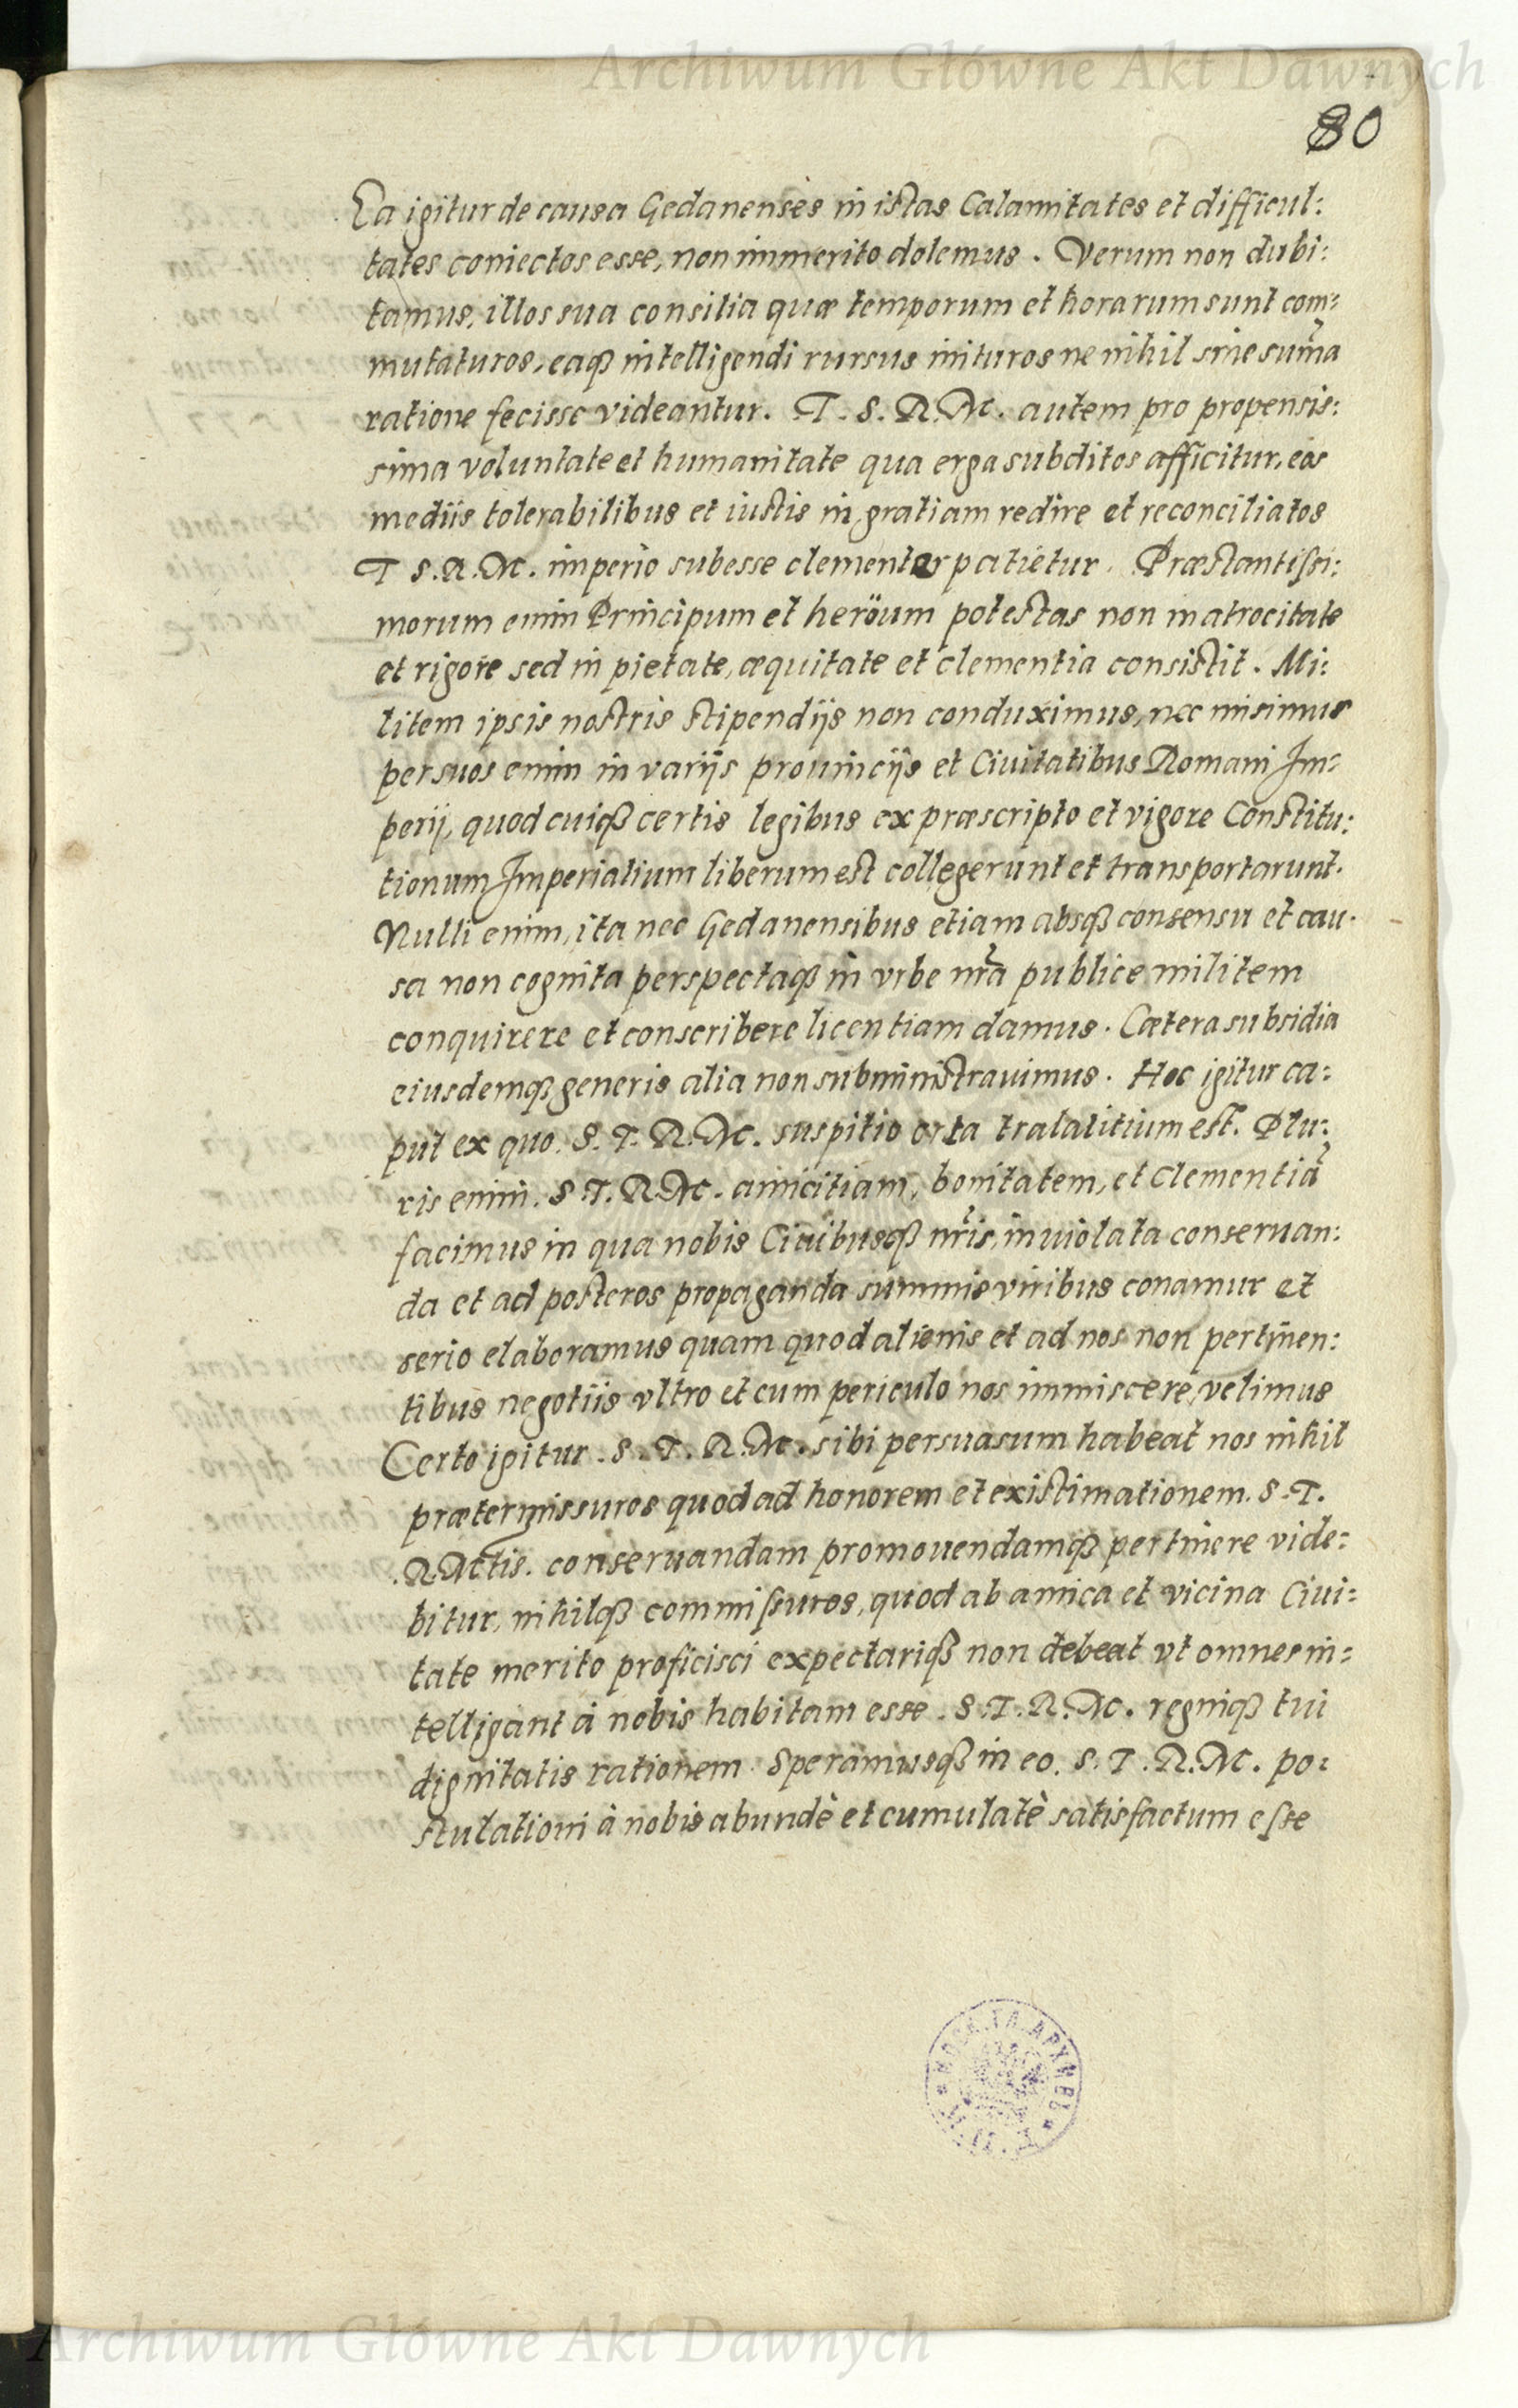 Archiwum Główne Akt Dawnych
80
Ea igitur de causa Gedanenses in istas Calamitates et difficul:
tates coniectos esse, non immerito dolemus. Verum non dubi:
tamus, illos sua consilia quæ temporum et horarum sunt com:
mutaturos, eaqȝ intelligendi rursus inituros ne nihil sine sum̃a
ratione fecisse videantur. T. S. R. M. autem pro propensis:
sima voluntate et humanitate qua erga subditos afficitur, eos
mediis tolerabilibus et iustis in gratiam redire et reconciliatos
T S. R. M. imperio subesse clementer patietur. Præstantissi:
morum enim Principum et heröum potestas non in atrocitate
et rigore sed in pietate, æquitate et clementia consistit. Mi:
litem ipsis nostris stipendijs non conduximus, nec misimus
per suos enim in varijs prouincijs et Ciuitatibus Romani Im:
perij, quod cuiqȝ certis legibus ex præscripto et vigore Constitu:
tionum Imperialium liberum est collegerunt et transportarunt.
Nulli enim, ita nec Gedanensibus etiam absqȝ consensu et cau.
sa non cognita perspectaqȝ in vrbe nr̃a publice militem
conquirere et conscribere licentiam damus. Cætera subsidia
eiusdemqȝ generis alia non subministrauimus. Hoc igitur ca:
put ex quo. S. T. R. M. suspitio orta tralatitium est. Plu:
ris enim. S T. R. M. amicitiam, bonitatem, et Clementiã
facimus in qua nobis Ciuibusqȝ nr̃is, inuiolata conseruan:
da et ad posteros propaganda summis viribus conamur et
serio elaboramus quam quod alienis et ad nos non pertinen:
tibus negotiis vltro et cum periculo nos immiscere, velimus
Certo igitur. S. T. R. M. sibi persuasum habeat nos nihil
prætermissuros quod ad honorem et existimationem. S. T.
R. Mtis. conseruandam promouendamqȝ pertinere vide:
bitur, nihilqȝ commissuros, quod ab amica et vicina Ciui:
tate merito proficisci expectariqȝ non debeat vt omnes in:
telligant à nobis habitam esse. S. T. R. M. regniqȝ tui
dignitatis rationem. Speramusqȝ in eo. S. T. R. M. po:
stulationi à nobis abundè et cumulatè satisfactum esse
Archiwum Główne Akt Dawnych